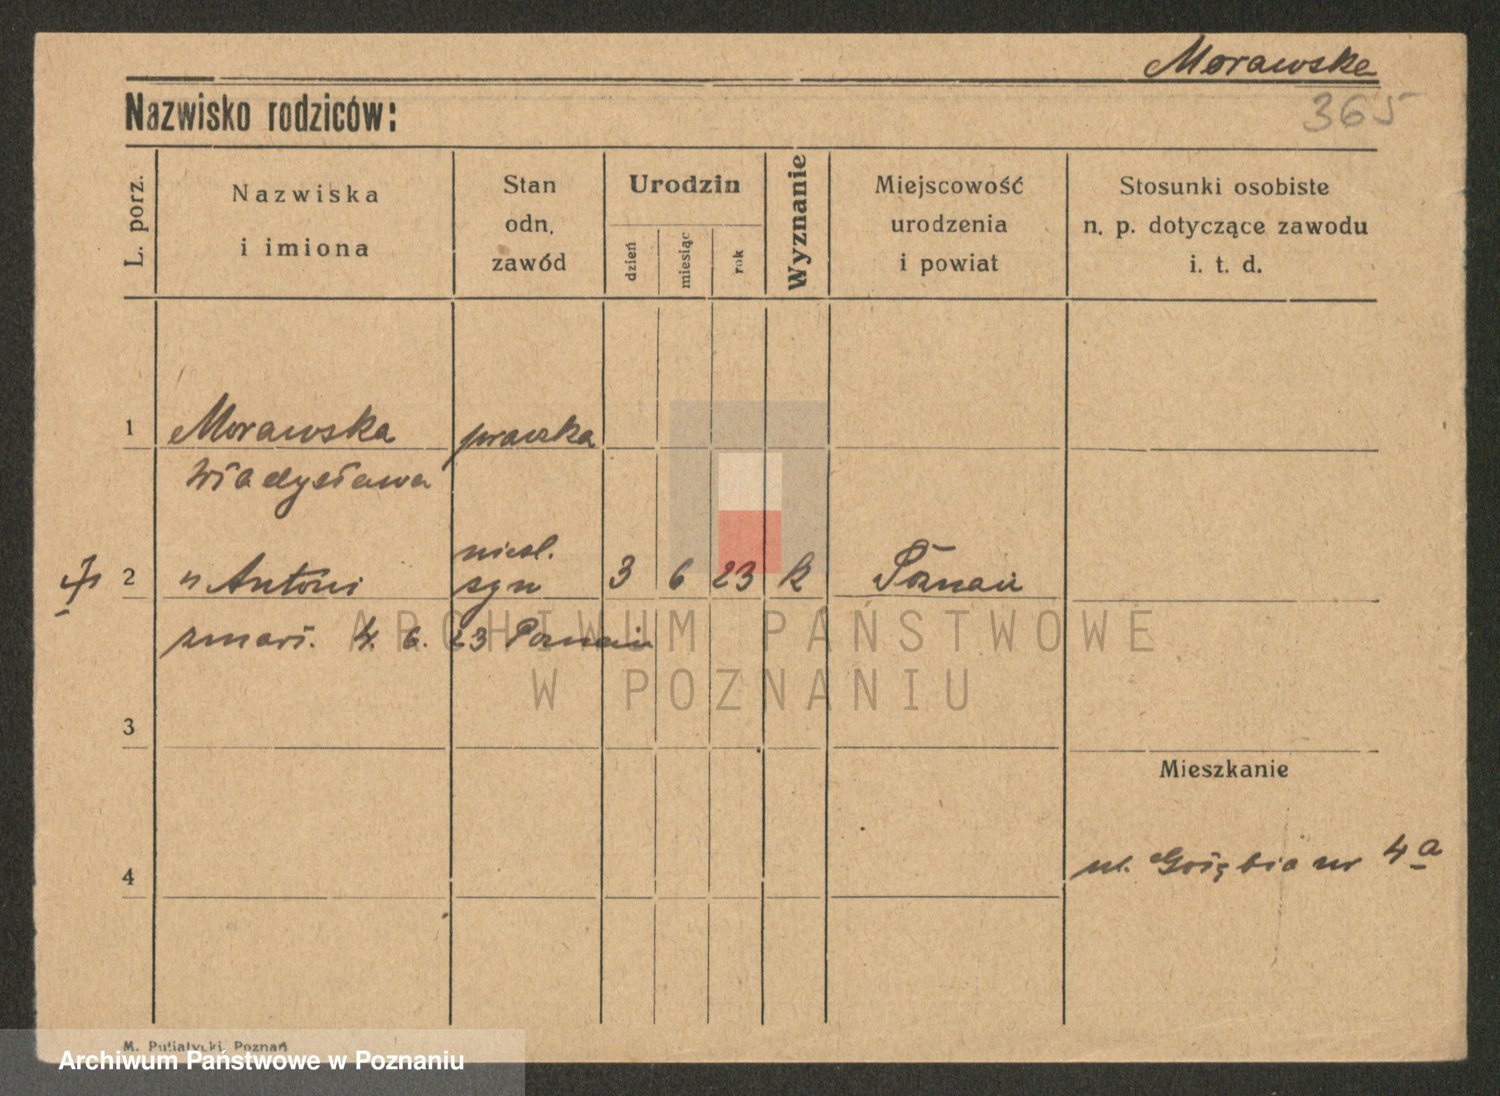 Morawska
365
Nazwisko rodziców:
L. porz.
Nazwiska
i imiona
Stan
odn.
zawód
Urodzin
dzień
miesiąc
rok
Wyznanie
Miejscowość
urodzenia
i powiat
Stosunki osobiste
n. p. dotyczące zawodu
i. t. d.
1 Morawska praczka
Władysława
niesl.
2 " Antoni syn 3 6 23 k Poznań
zmarł. 4. 6. 23 Poznań
ARCHIWUM PAŃSTWOWE
W POZNANIU
3
Mieszkanie
ul. Gołębia nr 4a
4
M. Putiatycki, Poznań
Archiwum Państwowe w Poznaniu